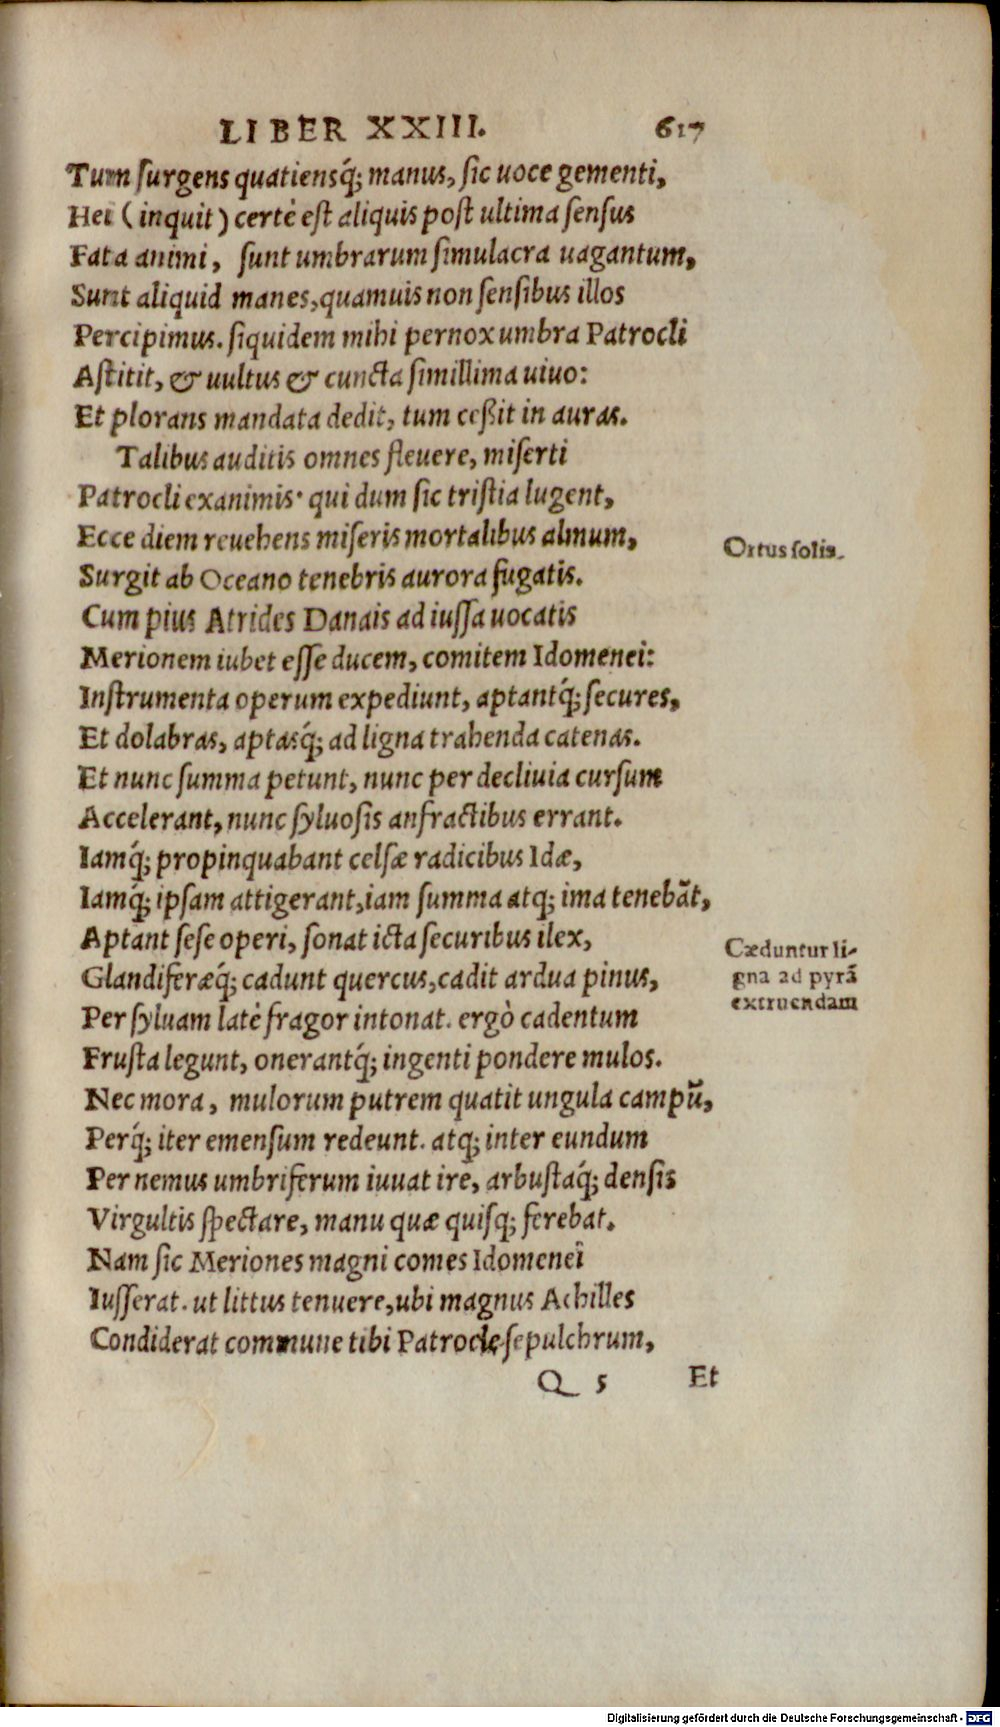 LIBER XXIII. 617
Tum surgens quatiensq́; manus, sic uoce gementi,
Hei (inquit) certè est aliquis post ultima sensus
Fata animi, sunt umbrarum simulacra uagantum,
Sunt aliquid manes, quamuis non sensibus illos
Percipimus. siquidem mihi pernox umbra Patrocli
Astitit, & uultus & cuncta simillima uiuo:
Et plorans mandata dedit, tum ceßit in auras.
Talibus auditis omnes fleuere, miserti
Patrocli exanimis· qui dum sic tristia lugent,
Ecce diem reuehens miseris mortalibus almum,
Ortus solis.
Surgit ab Oceano tenebris aurora fugatis.
Cum pius Atrides Danais ad iussa uocatis
Merionem iubet esse ducem, comitem Idomenei:
Instrumenta operum expediunt, aptantq́; secures,
Et dolabras, aptasq́; ad ligna trahenda catenas.
Et nunc summa petunt, nunc per decliuia cursum
Accelerant, nunc syluosis anfractibus errant.
Iamq́; propinquabant celsæ radicibus Idæ,
Iamq́; ipsam attigerant, iam summa atq; ima tenebãt,
Aptant sese operi, sonat icta securibus ilex,
Glandiferæq́; cadunt quercus, cadit ardua pinus,
Cæduntur li-
gna ad pyrã
extruendam
Per syluam latè fragor intonat. ergò cadentum
Frusta legunt, onerantq́; ingenti pondere mulos.
Nec mora, mulorum putrem quatit ungula campũ,
Perq́; iter emensum redeunt. atq; inter eundum
Per nemus umbriferum iuuat ire, arbustaq́; densis
Virgultis spectare, manu quæ quisq; ferebat.
Nam sic Meriones magni comes Idomenei
Iusserat. ut littus tenuere, ubi magnus Achilles
Condiderat commune tibi Patrocle sepulchrum,
Q 5 Et
Digitalisierung gefördert durch die Deutsche Forschungsgemeinschaft - DFG